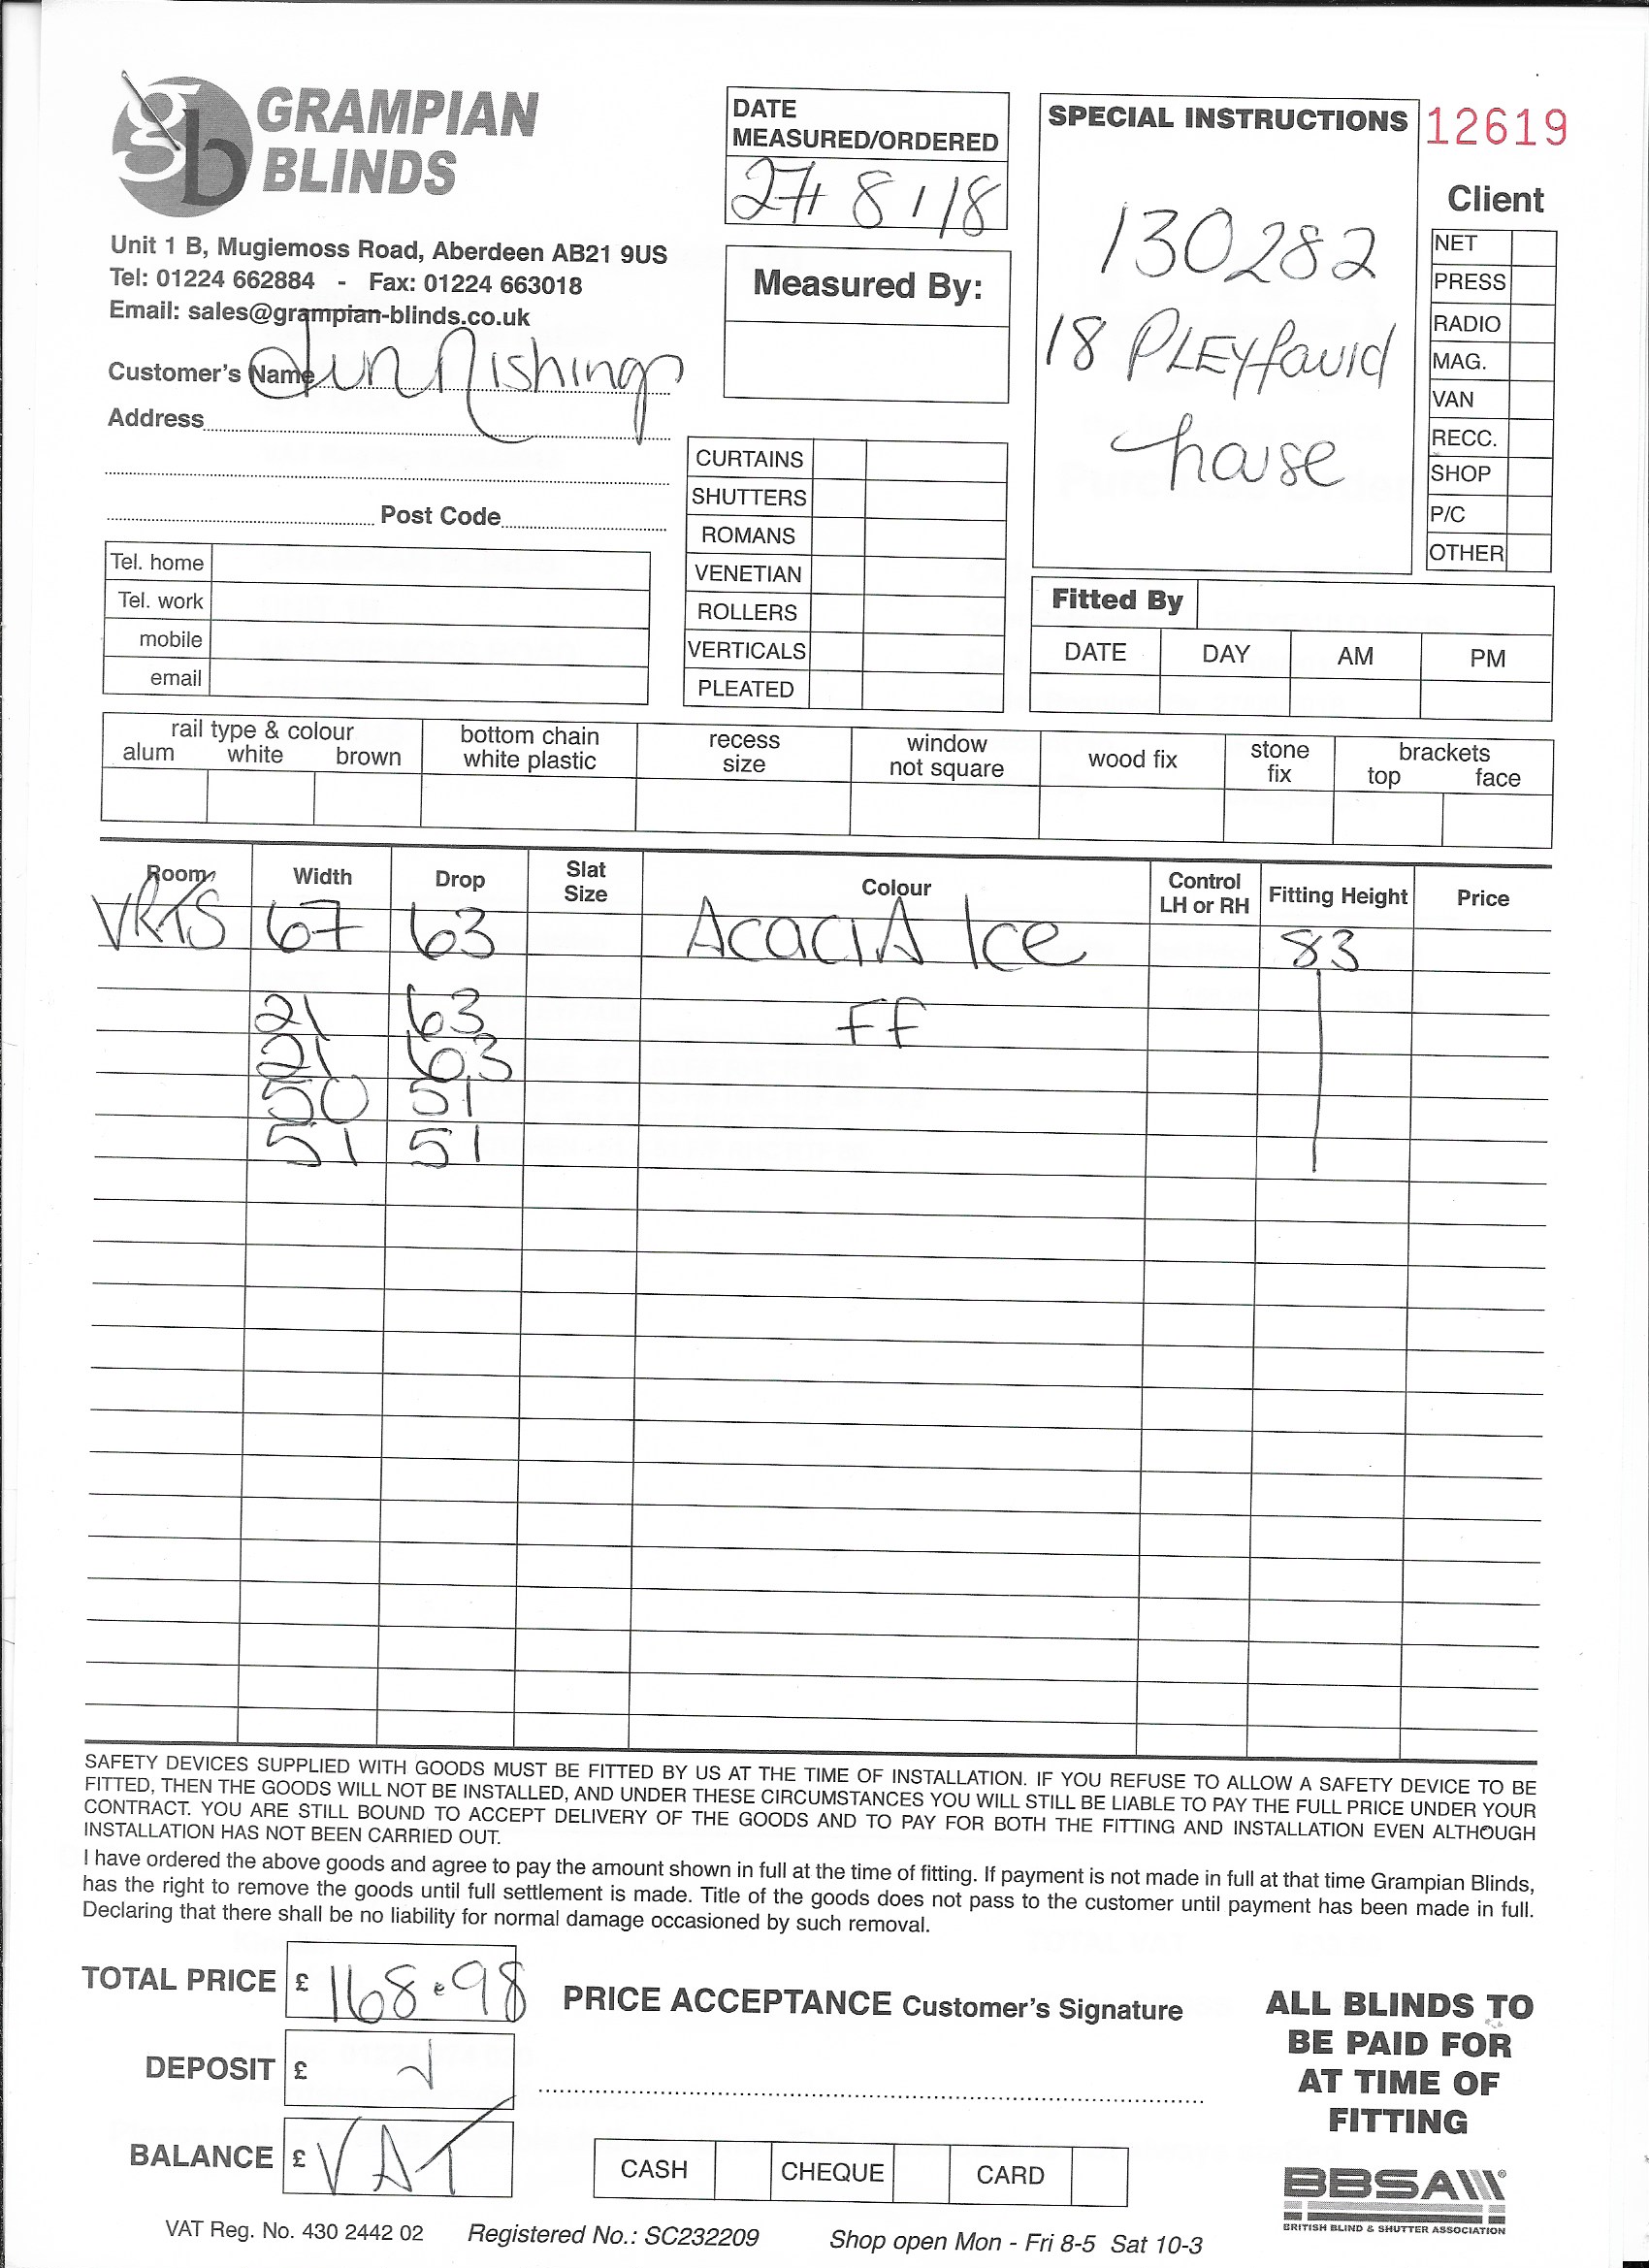 gb GRAMPIAN
BLINDS
Unit 1 B, Mugiemoss Road, Aberdeen AB21 9US
Tel: 01224 662884 - Fax: 01224 663018
Email: sales@grampian-blinds.co.uk
Customer's Name
Address
Post Code
Tel. home
Tel. work
mobile
email
DATE
MEASURED/ORDERED
27/8/18
Measured By:
CURTAINS
SHUTTERS
ROMANS
VENETIAN
ROLLERS
VERTICALS
PLEATED
SPECIAL INSTRUCTIONS
130282
18 PLEYfauld
house
12619
Client
NET
PRESS
RADIO
MAG.
VAN
RECC.
SHOP
P/C
OTHER
Fitted By
DATE DAY AM PM
rail type & colour
alum white brown
bottom chain
white plastic
recess
size
window
not square
wood fix
stone
fix
brackets
top face
Room Width Drop Slat Size Colour Control LH or RH Fitting Height Price
VRTS 67 63 AcaciA Ice 83
21 63 FF
21 63
50 51
51 51
SAFETY DEVICES SUPPLIED WITH GOODS MUST BE FITTED BY US AT THE TIME OF INSTALLATION. IF YOU REFUSE TO ALLOW A SAFETY DEVICE TO BE
FITTED, THEN THE GOODS WILL NOT BE INSTALLED, AND UNDER THESE CIRCUMSTANCES YOU WILL STILL BE LIABLE TO PAY THE FULL PRICE UNDER YOUR
CONTRACT. YOU ARE STILL BOUND TO ACCEPT DELIVERY OF THE GOODS AND TO PAY FOR BOTH THE FITTING AND INSTALLATION EVEN ALTHOUGH
INSTALLATION HAS NOT BEEN CARRIED OUT.
I have ordered the above goods and agree to pay the amount shown in full at the time of fitting. If payment is not made in full at that time Grampian Blinds,
has the right to remove the goods until full settlement is made. Title of the goods does not pass to the customer until payment has been made in full.
Declaring that there shall be no liability for normal damage occasioned by such removal.
TOTAL PRICE £ 168.98
DEPOSIT £
BALANCE £ VAT
PRICE ACCEPTANCE Customer's Signature
CASH CHEQUE CARD
ALL BLINDS TO
BE PAID FOR
AT TIME OF
FITTING
BBSA
BRITISH BLIND & SHUTTER ASSOCIATION
VAT Reg. No. 430 2442 02 Registered No.: SC232209 Shop open Mon - Fri 8-5 Sat 10-3